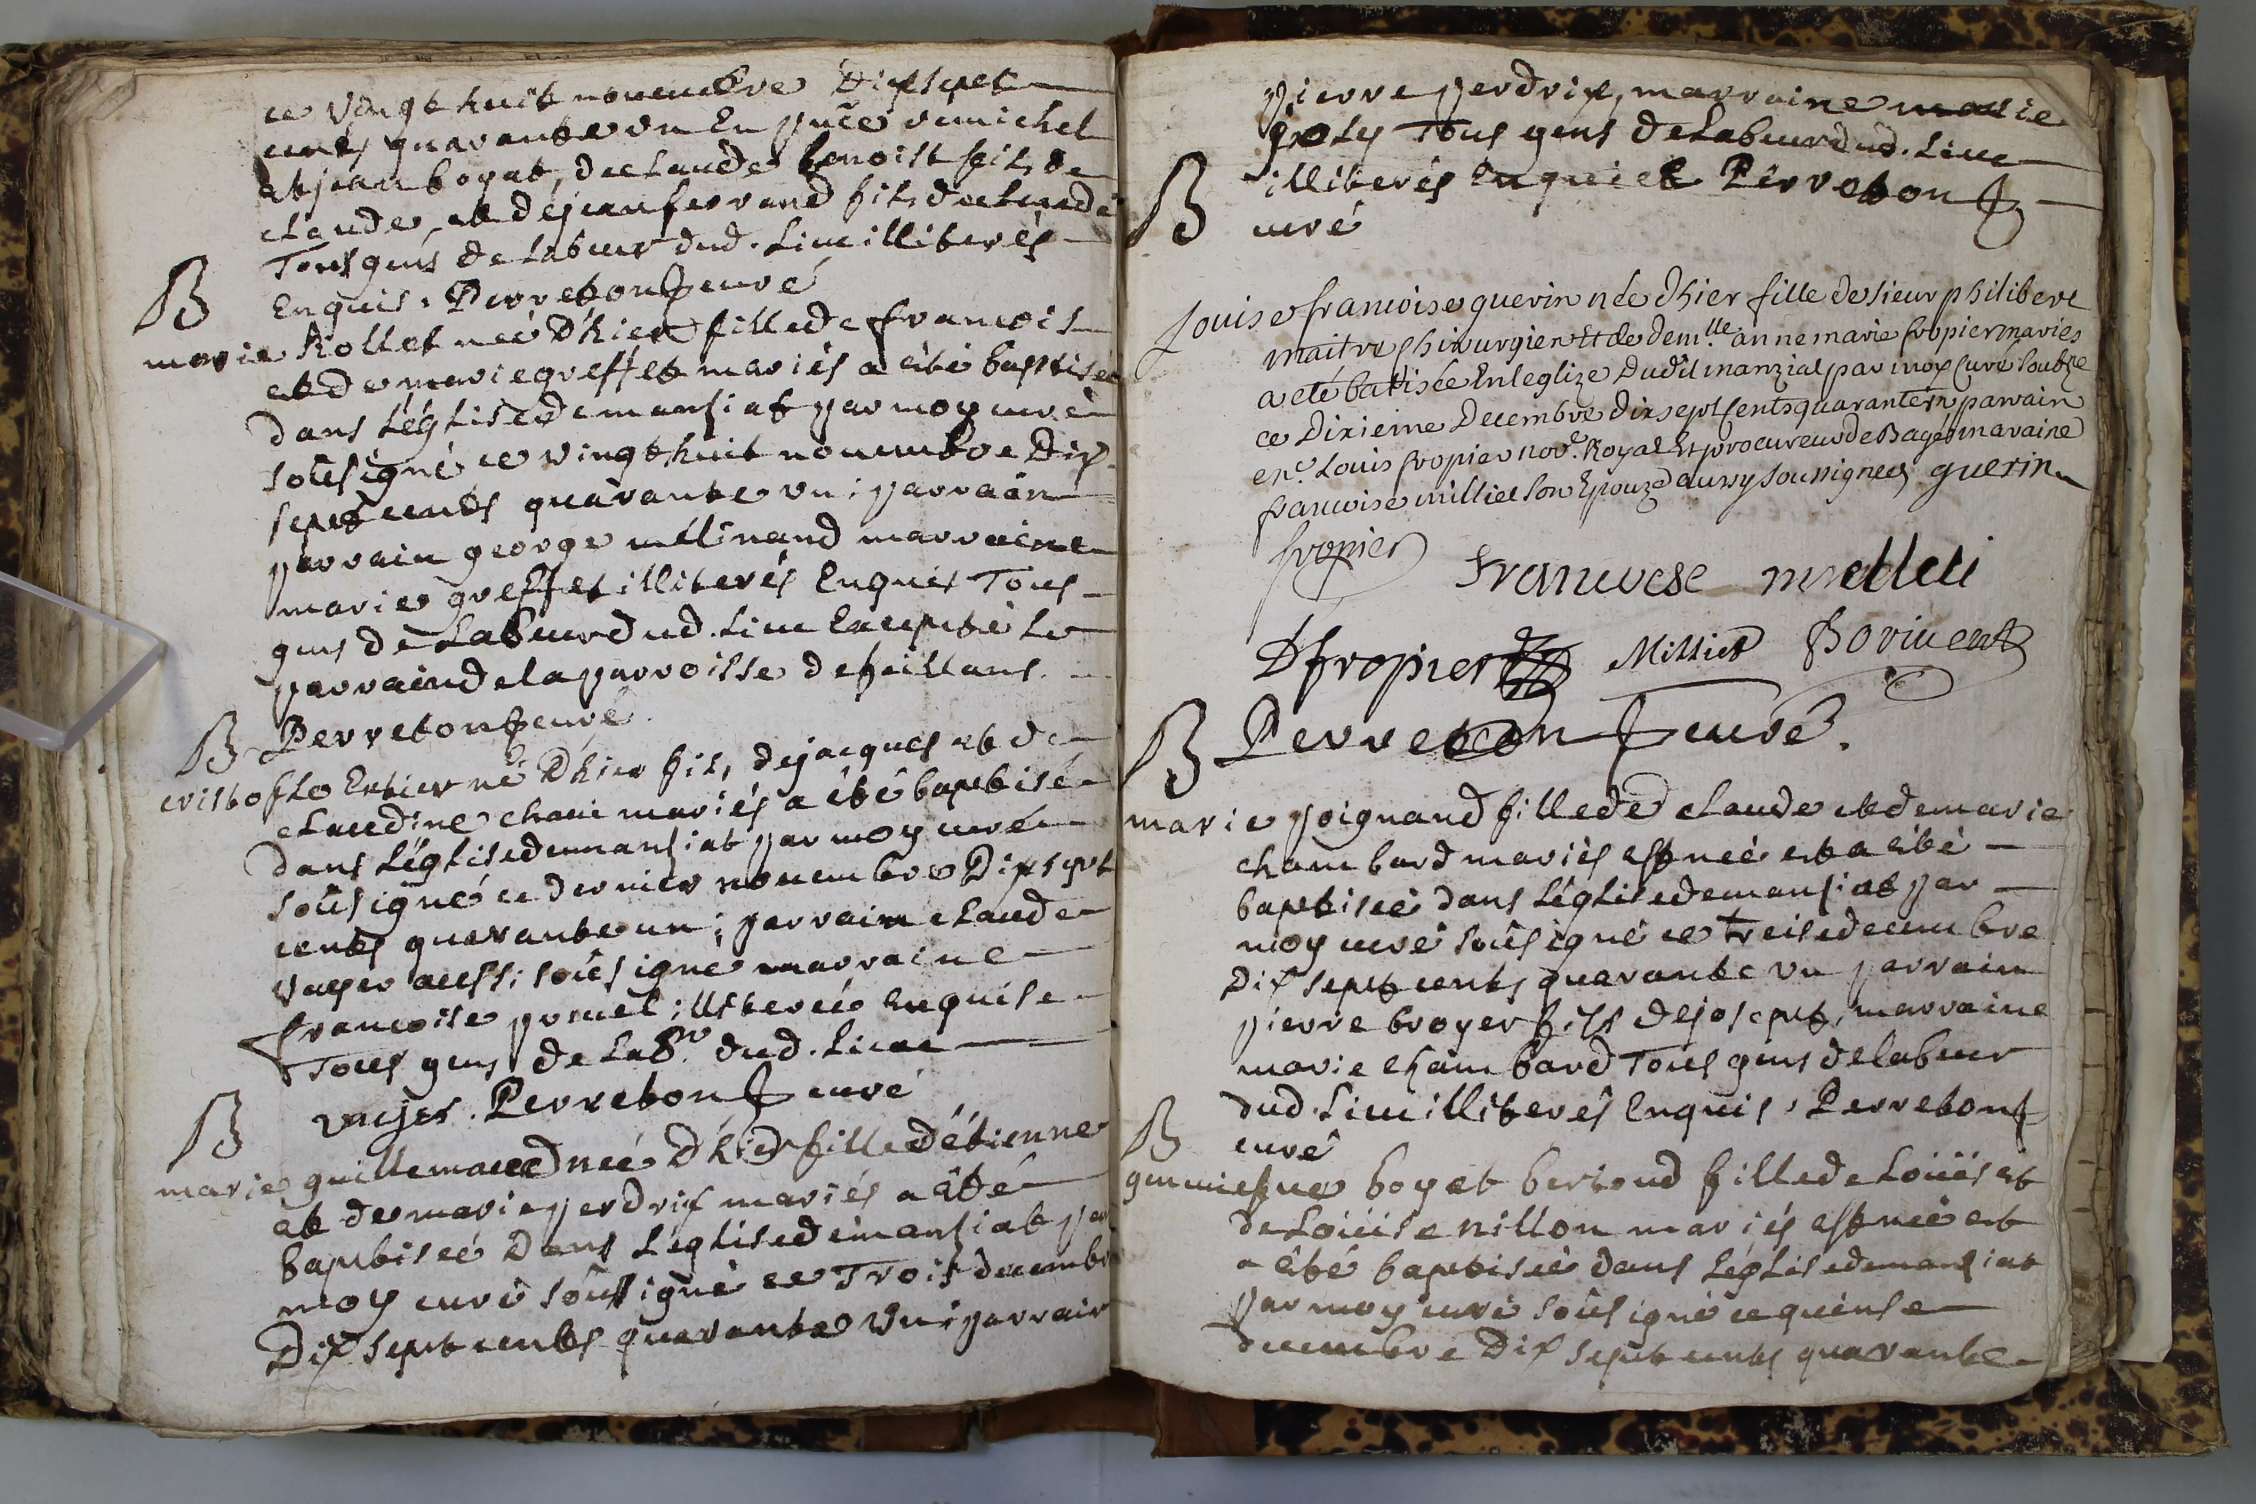 ce vingt huit novembre Dix sept
cents quarante un En pnce de michel
et jean boyat, de claude benoist fils de
claude, et de jean ferrand fils de claude
Tous gens de labeur dud. lieu illiterés
Enquis. Perreton curé
B
marie Rollet neé D'hier fille de francois
et de marie greffet mariés a été baptiseé
dans L'église de mansiat par moy curé
soûsigné ce vingt huit novembre Dix
sept cents quarante un; parrain
parrain george mélinand marraine
marie greffet illiterés Enquis Tous
gens de Labeur dud. Lieu Excepté le
parrain de la parroisse de feillans.
Perreton curé.
B
cristofle Ertier né D'hier fils de jacques et de
claudine chanu mariés a été baptisé
dans L'église de mansiat par moy curé
soûsigné ce dernier novembre Dix sept
cents quarante un; parrain claude
vuyer aussi soûsigné marraine
francoise pomel illitereé Enquise
Tous gens de Labr. dud. Lieu
vuyer. Perreton curé
B
marie guillemaud neé D'hier fille d'étienne
et de marie perdrix mariés a été
baptiseé Dans L'église de mansiat par
moy curé soûssigné ce Trois decembre
Dix sept cents quarante un; parrain
pierre perdrix, marraine marie
joly Tous gens de Labeur dud. Lieu
illiterés Enquis Perreton
curé
B
Louise francoise guerin née d'hier fille de sieur philibert
maitre chirurgien Et de demlle anne marie fropier mariés
a eté batisée En leglize Dudit manzial par moy Curé soubzne
ce Dixieme Decembre dix sept Cents quarante un parrain
Louis fropier nore. Royal Et procureur de Bagé marraine
francoise milliet son Epouze aussy soussignees guerin
fropier
francoese milleti
Dfropier Milliet Borivent
Perreton curé.
B
marie poignand fille de claude et de marie
chambard mariés est neé et a été
baptiseé dans L'église de mansiat par
moy curé soûsigné ce treise decembre
Dix sept cents quarante un parrain
pierre broyer fils de josept, marraine
marie chambard Tous gens de labeur
dud. Lieu illiterés Enquis. Perreton
curé
B
boyat berioud fille de Loüis et
de Loüise nillon mariés est neé et
a été baptiseé dans L'église de mansiat
par moy curé soûsigné ce quinse
decembre Dix sept cents quarante